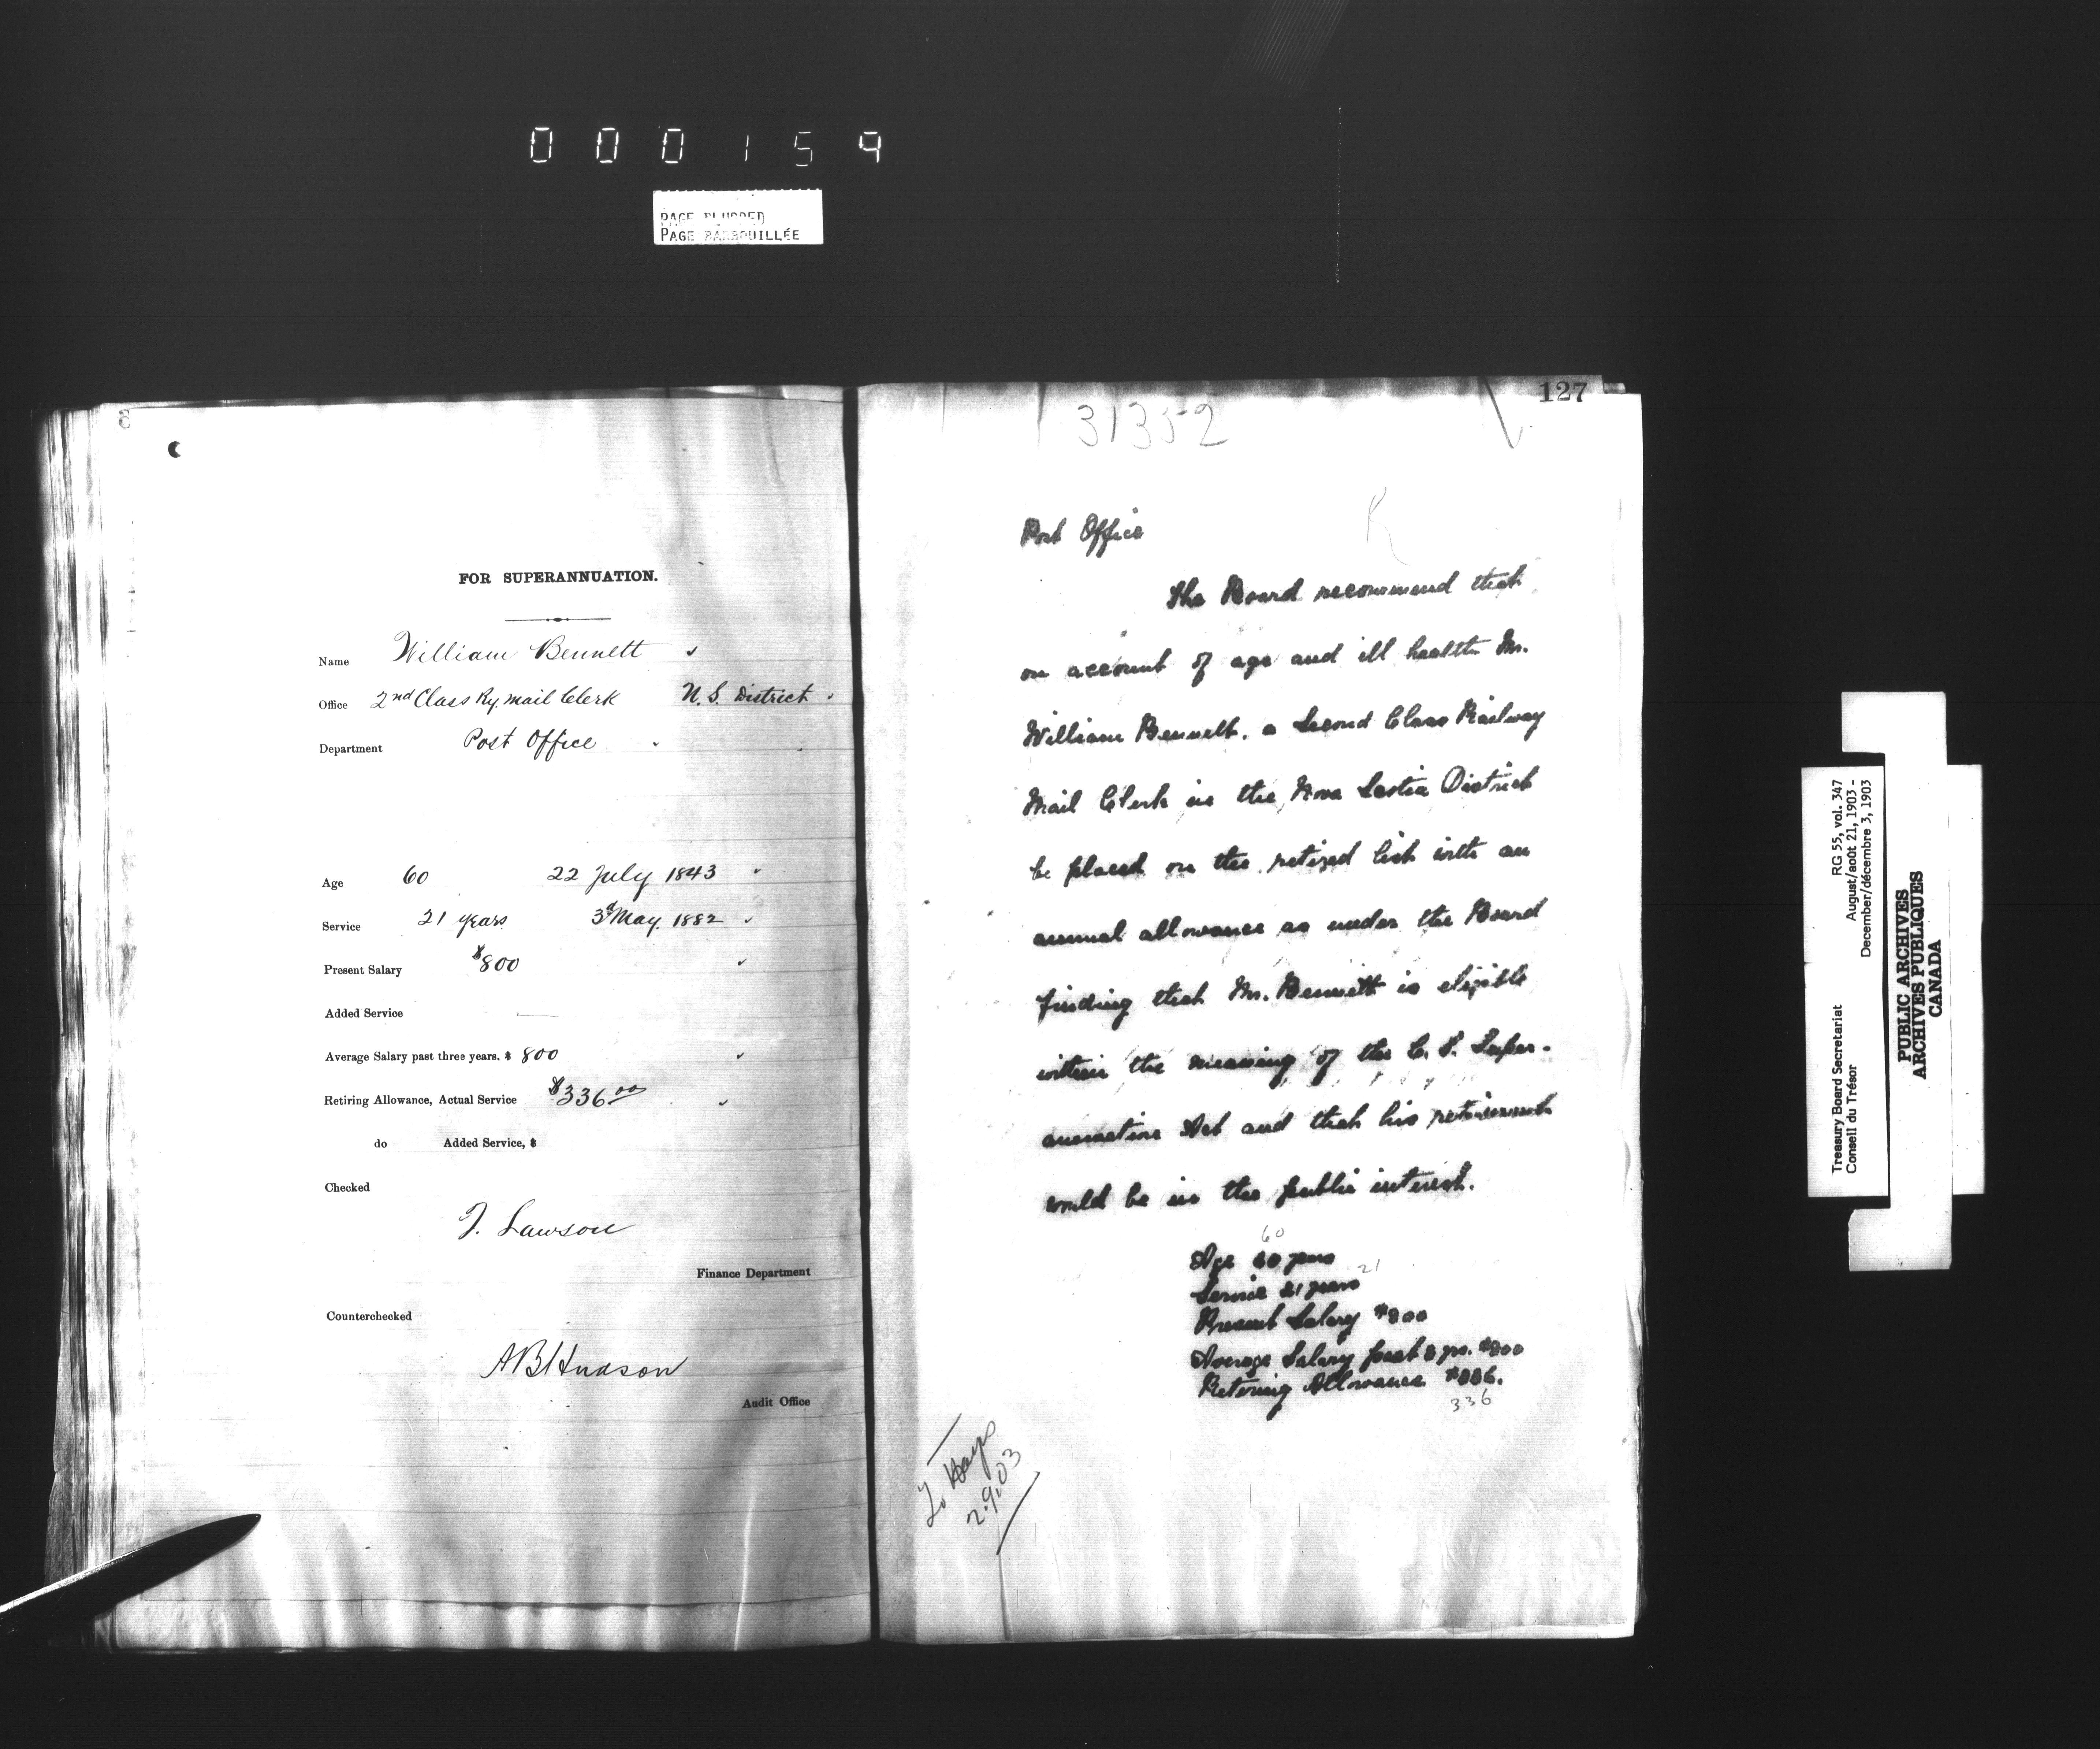 000159
PAGE PLUGGED
PAGE BARBOUILLÉE
FOR SUPERANNUATION.
Name William Bennett
Office 2nd Class Ry. Mail Clerk N.S. District
Department Post Office
Age 60 22 July 1843
Service 21 years 3d May 1882
Present Salary $800
Added Service —
Average Salary past three years. $ 800
Retiring Allowance, Actual Service $336.00
do Added Service, $
Checked
J. Lawson
Finance Department
Counterchecked
A B Hudson
Audit Office
127
31352
R
Post Office
The Board recommend that
on account of age and ill health Mr.
William Bennett, a Second Class Railway
Mail Clerk in the Nova Scotia District
be placed on the retired list with an
annual allowance as under the Board
finding that Mr. Bennett is eligible
within the meaning of the C. S. Super-
annuation Act and that his retirement
would be in the public interest.
60
Age 60 years
21
Service 21 years
Present Salary $800
Average Salary past 3 yrs. $800
Retiring Allowance $336.
336
2.9.03
Treasury Board Secretariat RG 55, vol. 347
Conseil du Trésor August/août 21, 1903 -
December/décembre 3, 1903
PUBLIC ARCHIVES
ARCHIVES PUBLIQUES
CANADA